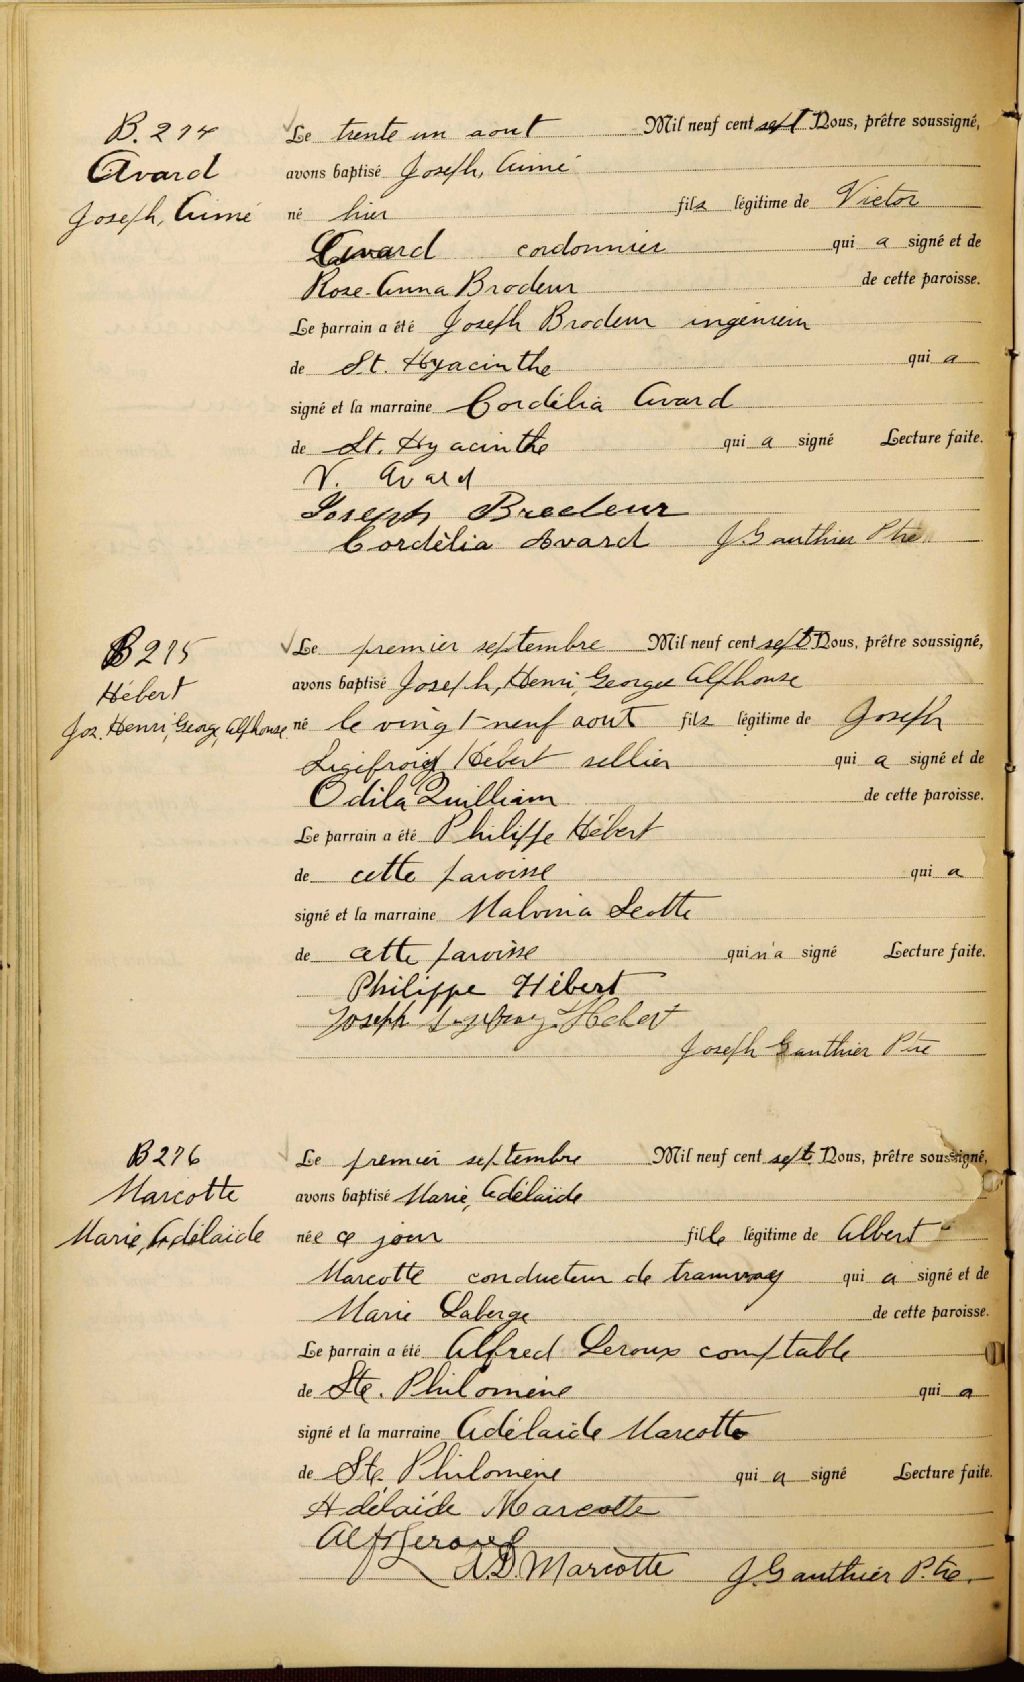 B. 274
Avard
Joseph, Aimé
Le trente un aout Mil neuf cent sept Nous, prêtre soussigné,
avons baptisé Joseph, Aimé
né hier fils légitime de Victor
Avard cordonnier qui a signé et de
Rose-Anna Brodeur de cette paroisse.
Le parrain a été Joseph Brodeur ingénieur
de St. Hyacinthe qui a
signé et la marraine Cordélia Avard
de St. Hyacinthe qui a signé Lecture faite.
V. Avard
Joseph Brodeur
Cordélia Avard J. Gauthier Ptre
B 275
Hébert
Jos. Henri, George, Alphonse
Le premier septembre Mil neuf cent sept Nous, prêtre soussigné,
avons baptisé Joseph, Henri, George Alphonse
né le vingt-neuf aout fils légitime de Joseph
Hébert sellier qui a signé et de
Odila Quilliam de cette paroisse.
Le parrain a été Philippe Hébert
de cette paroisse qui a
signé et la marraine Malvina
de cette paroisse qui n'a signé Lecture faite.
Philippe Hébert
Joseph Hebert
Joseph Gauthier Ptre
B 276
Marcotte
Marie, Adélaide
Le premier septembre Mil neuf cent sept. Nous, prêtre soussigné,
avons baptisé Marie, Adélaide
née ce jour fille légitime de Albert
Marcotte conducteur de tramway qui a signé et de
Marie Laberge de cette paroisse.
Le parrain a été Alfred Leroux comptable
de Ste. Philomène qui a
signé et la marraine Adélaide Marcotte
de Ste. Philomène qui a signé Lecture faite.
Adélaide Marcotte
Alf Leroux
A.D. Marcotte J. Gauthier P.tre.